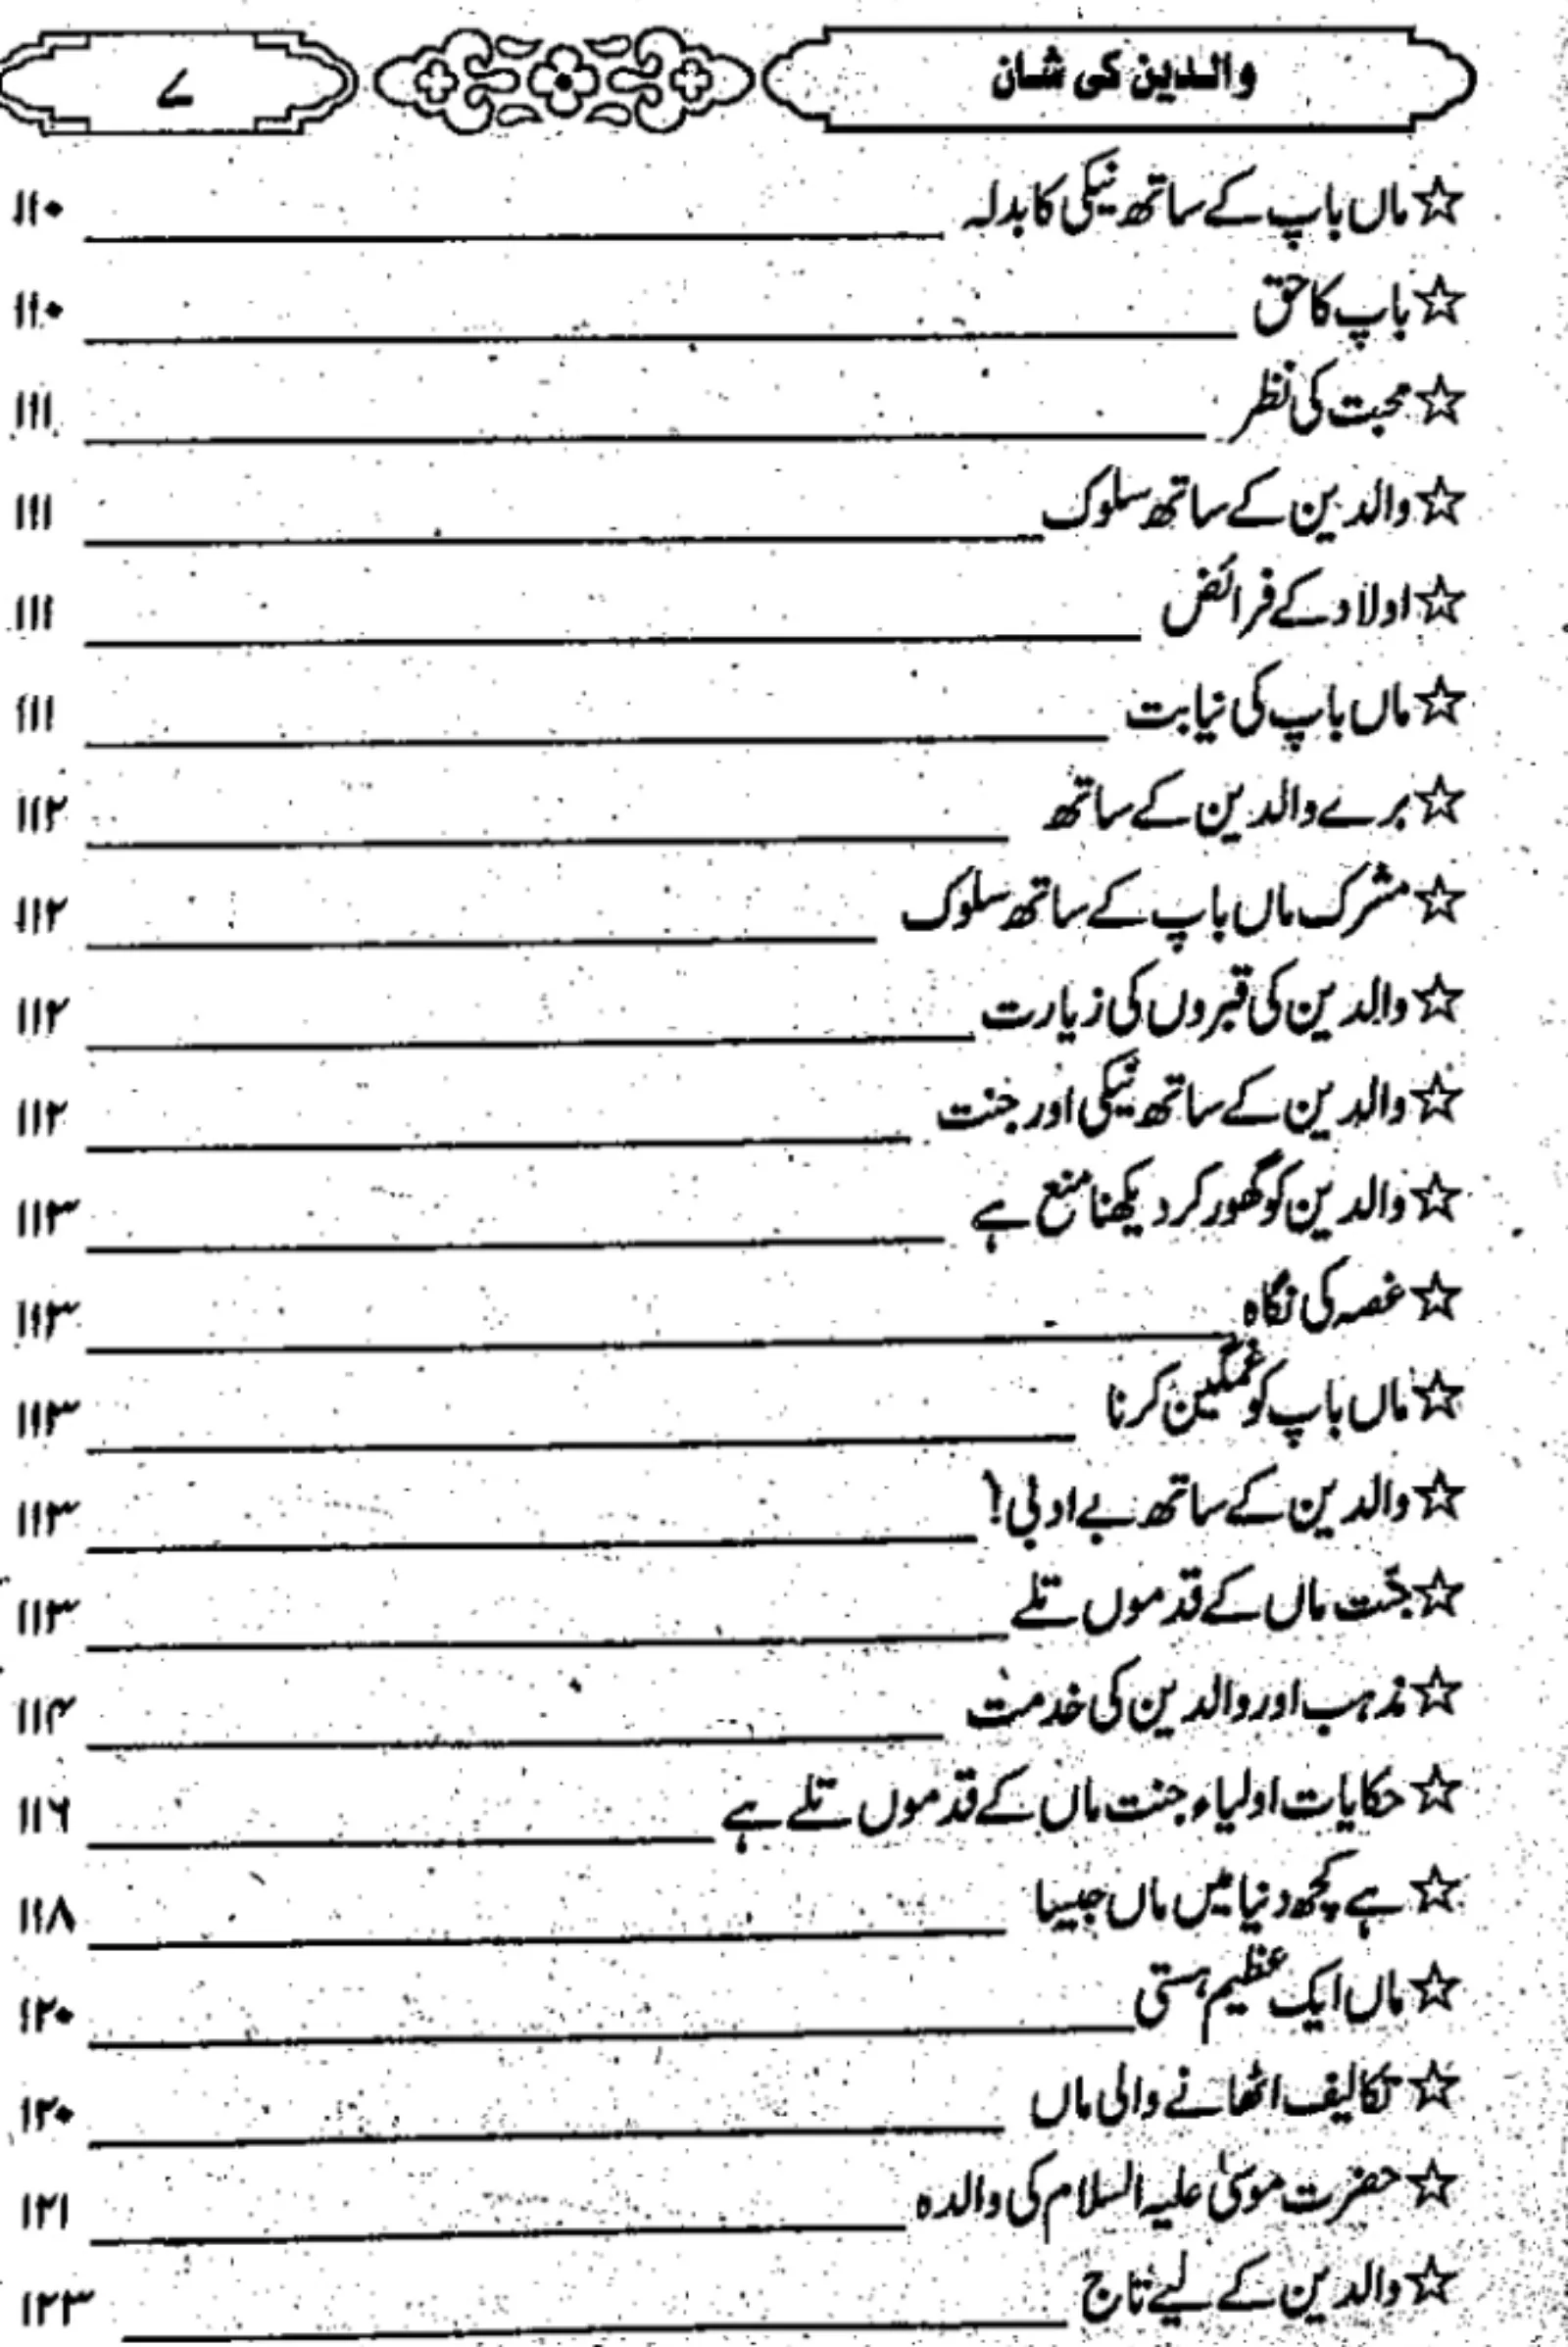 والدین کی شان ۷
☆ ماں باپ کے ساتھ نیکی کا بدلہ ۱۱۰
☆ باپ کا حق ۱۱۰
☆ محبت کی نظر ۱۱۱
☆ والدین کے ساتھ سلوک ۱۱۱
☆ اولاد کے فرائض ۱۱۱
☆ ماں باپ کی نیابت ۱۱۱
☆ برے والدین کے ساتھ ۱۱۲
☆ مشرک ماں باپ کے ساتھ سلوک ۱۱۲
☆ والدین کی قبروں کی زیارت ۱۱۲
☆ والدین کے ساتھ نیکی اور جنت ۱۱۲
☆ والدین کو گھور کر دیکھنا منع ہے ۱۱۳
☆ غصہ کی نگاہ ۱۱۳
☆ ماں باپ کو غمگین کرنا ۱۱۳
☆ والدین کے ساتھ بے ادبی! ۱۱۳
☆ جنّت ماں کے قدموں تلے ۱۱۳
☆ مذہب اور والدین کی خدمت ۱۱۴
☆ حکایات اولیاء جنت ماں کے قدموں تلے ہے ۱۱۶
☆ ہے کچھ دنیا میں ماں جیسا ۱۱۸
☆ ماں ایک عظیم ہستی ۱۲۰
☆ تکالیف اٹھانے والی ماں ۱۲۰
☆ حضرت موسیٰ علیہ السلام کی والدہ ۱۲۱
☆ والدین کے لیے تاج ۱۲۳